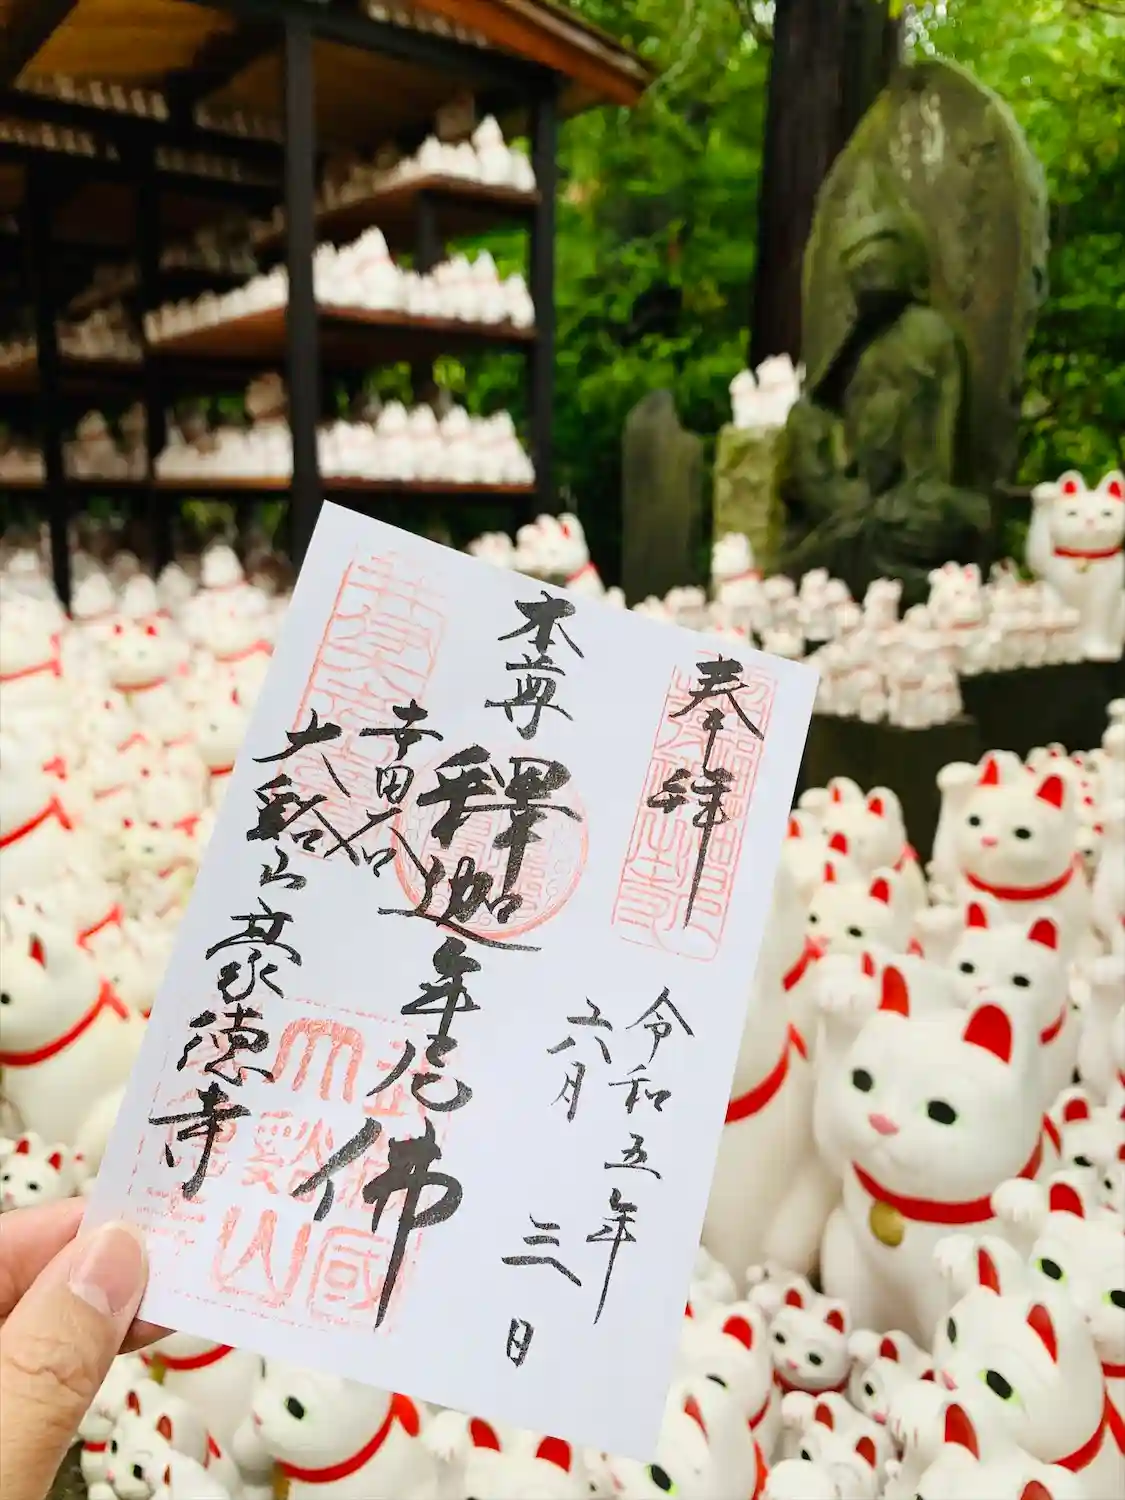 奉拝
令和五年
六月
三日
本尊
釋迦牟尼佛
世田谷
大谿山
豪徳寺
大谿山